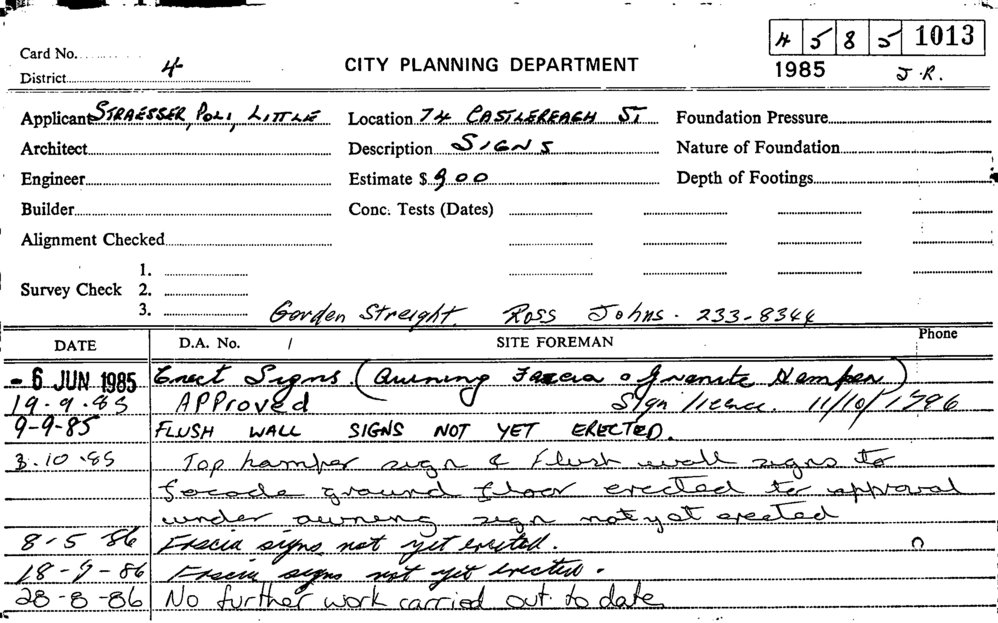 4 5 8 5 1013
Card No.
District 4
CITY PLANNING DEPARTMENT
1985 J.R.
Applicant STRAESSER, POLI, LITTLE Location 74 CASTLEREAGH ST Foundation Pressure
Architect Description SIGNS Nature of Foundation
Engineer Estimate $ 900 Depth of Footings
Builder Conc. Tests (Dates)
Alignment Checked
1.
Survey Check 2.
3.
Gorden Streight. Ross Johns. 233-8344
DATE D.A. No. / SITE FOREMAN Phone
- 6 JUN 1985 Erect Signs. (Awning Fascia & Granite Hamper)
19.9.85 APProved Sign licence. 11/10/1796
9-9-85 FLUSH WALL SIGNS NOT YET ERECTED.
3.10.85 Top hamper sign & Flush wall signs to
facade ground floor erected to approval
under awning sign not yet erected
8-5-86 Fascia signs not yet erected.
18-7-86 Fascia signs not yet erected.
28-8-86 No further work carried out to date